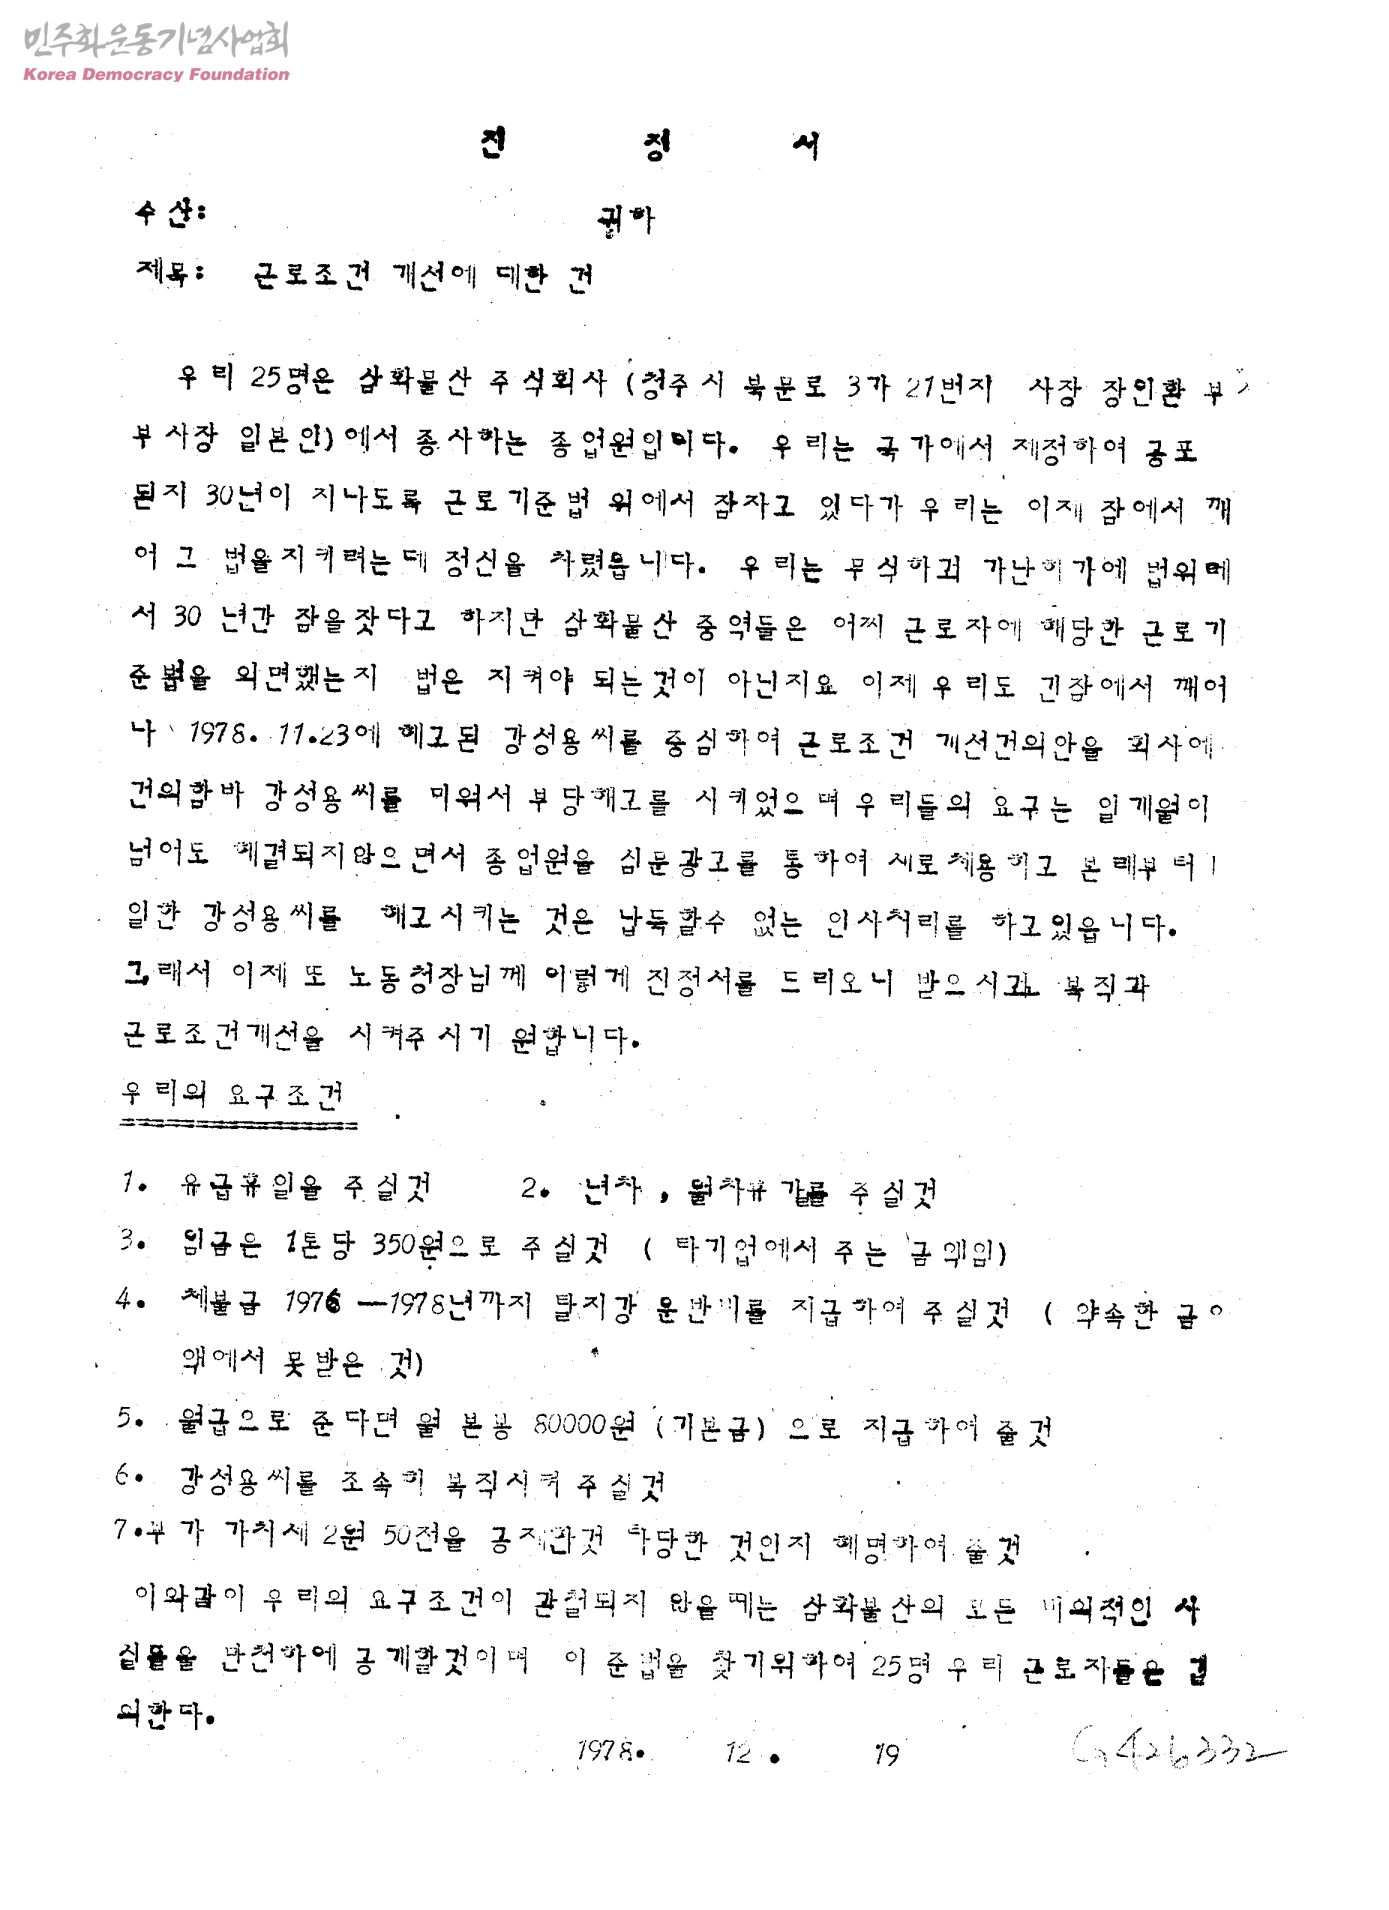 민주화운동기념사업회
Korea Democracy Foundation
진 정 서
수신: 귀하
제목: 근로조건 개선에 대한 건
우리 25명은 삼화물산 주식회사 (청주시 북문로 3가 21번지 사장 장인환 부
부사장 일본인)에서 종사하는 종업원입니다. 우리는 국가에서 제정하여 공포
된지 30년이 지나도록 근로기준법 위에서 잠자고 있다가 우리는 이제 잠에서 깨
어 그 법을지키려는데 정신을 차렸읍니다. 우리는 무식하고 가난하기에 법위에
서 30 년간 잠을잣다고 하지만 삼화물산 중역들은 어찌 근로자에 해당한 근로기
준법을 외면했는지 법은 지켜야 되는것이 아닌지요 이제 우리도 긴잠에서 깨어
나 1978. 11.23에 해고된 강성용씨를 중심하여 근로조건 개선건의안을 회사에
건의함바 강성용씨를 미워서 부당해고를 시키었으며 우리들의 요구는 일개월이
넘어도 해결되지않으면서 종업원을 심문광고를 통하여 새로채용하고 본래부터
일한 강성용씨를 해고시키는 것은 납득할수 없는 인사처리를 하고있읍니다.
그래서 이제 또 노동청장님께 이렇게 진정서를 드리오니 받으시고 복직과
근로조건개선을 시켜주시기 원합니다.
우리의 요구조건
1. 유급휴일을 주실것 2. 년차, 월차휴가를 주실것
3. 임금은 1톤당 350원으로 주실것 ( 타기업에서 주는 금액임)
4. 체불금 1976 —1978년까지 탈지강 운반비를 지급하여 주실것 ( 약속한 금
액에서 못받은 것)
5. 월급으로 준다면 월 본봉 80000원 (기본급) 으로 지급하여 줄것
6. 강성용씨를 조속히 복직시켜 주실것
7.부가 가치세 2원 50전을 공제한것 타당한 것인지 해명하여 줄것
이와같이 우리의 요구조건이 관철되지 않을때는 삼화물산의 모든 비의적인 사
실들을 만천하에 공개할것이며 이 준법을 찾기위하여 25명 우리 근로자들은 결
의한다.
1978. 12. 19
G426332